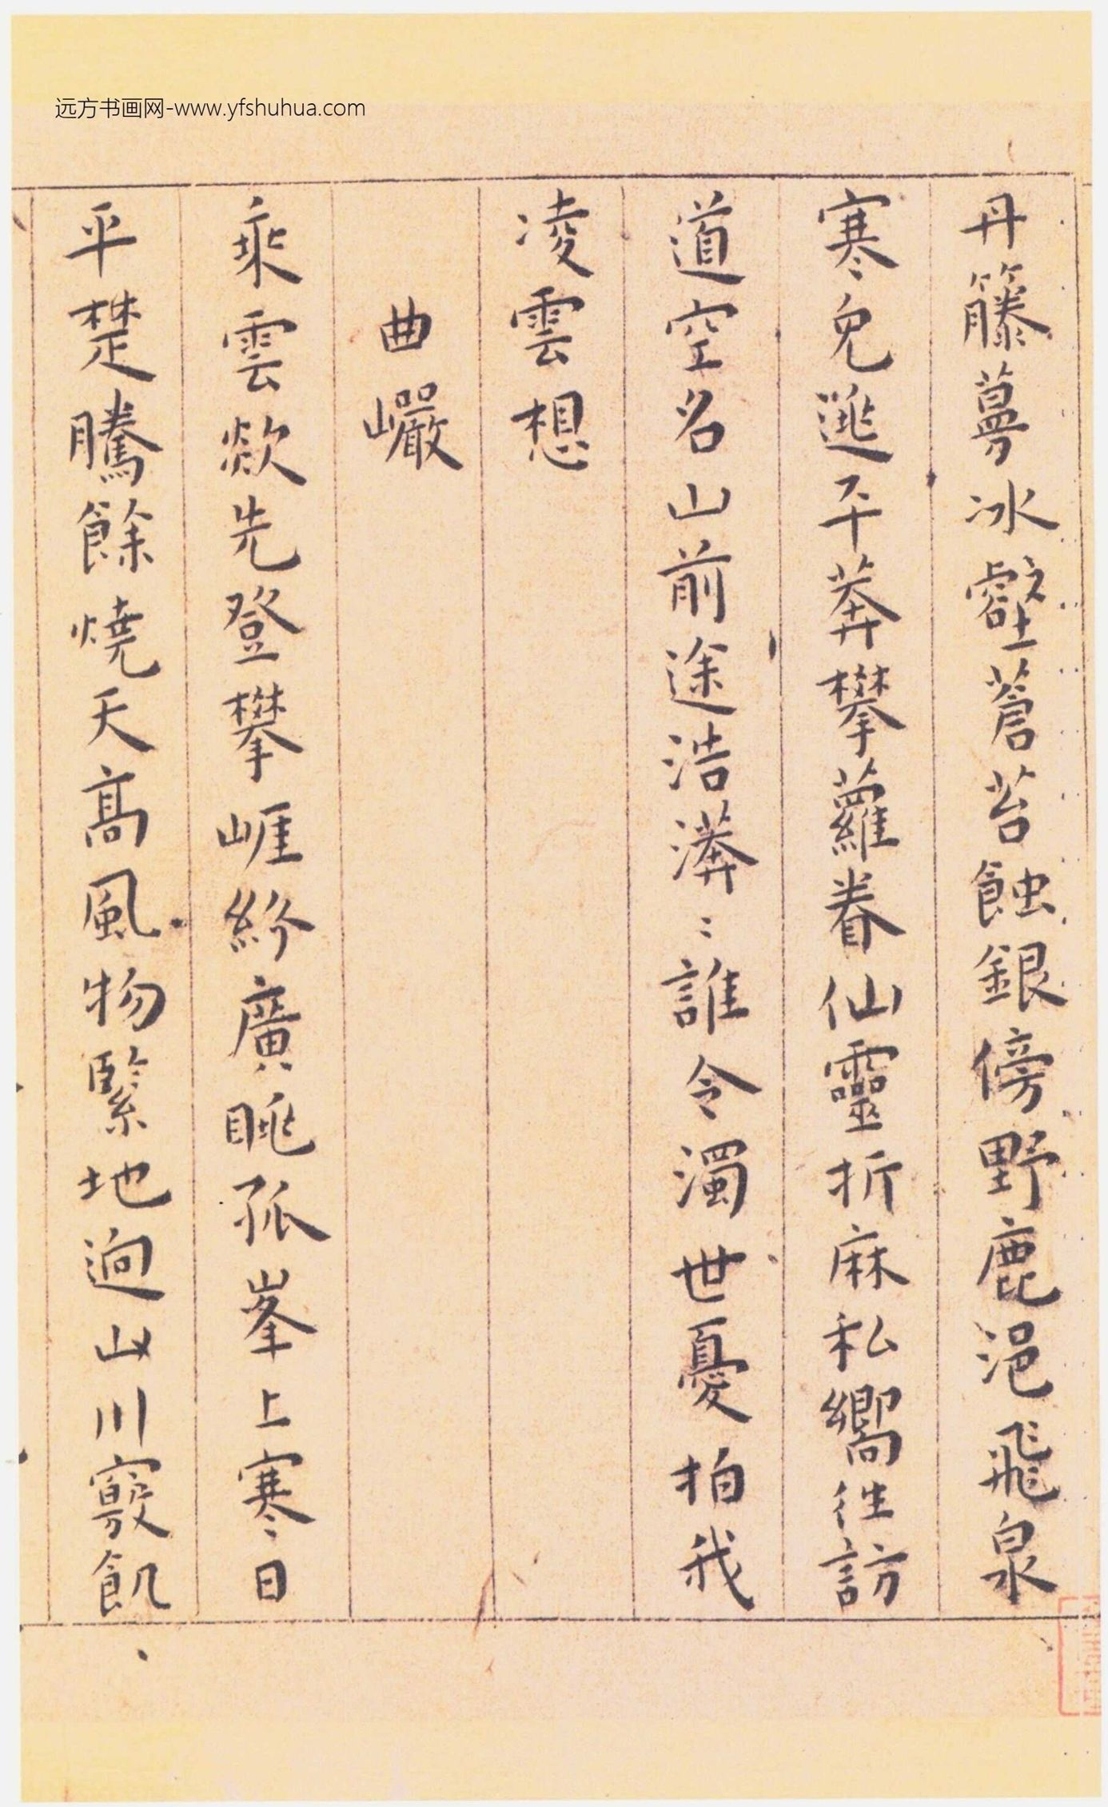 远方书画网-www.yfshuhua.com
丹籐蔓冰壑蒼苔蝕銀傍野鹿浥飛泉
寒兔逃平莽攀蘿眷仙靈折麻私嚮往訪
道空名山前途浩漭〻誰令濁世憂拍我
凌雲想
曲巖
乘雲欻先登攀崕紾廣眺孤峯上寒日
平楚騰餘燒天高風物緊地迥山川竅飢